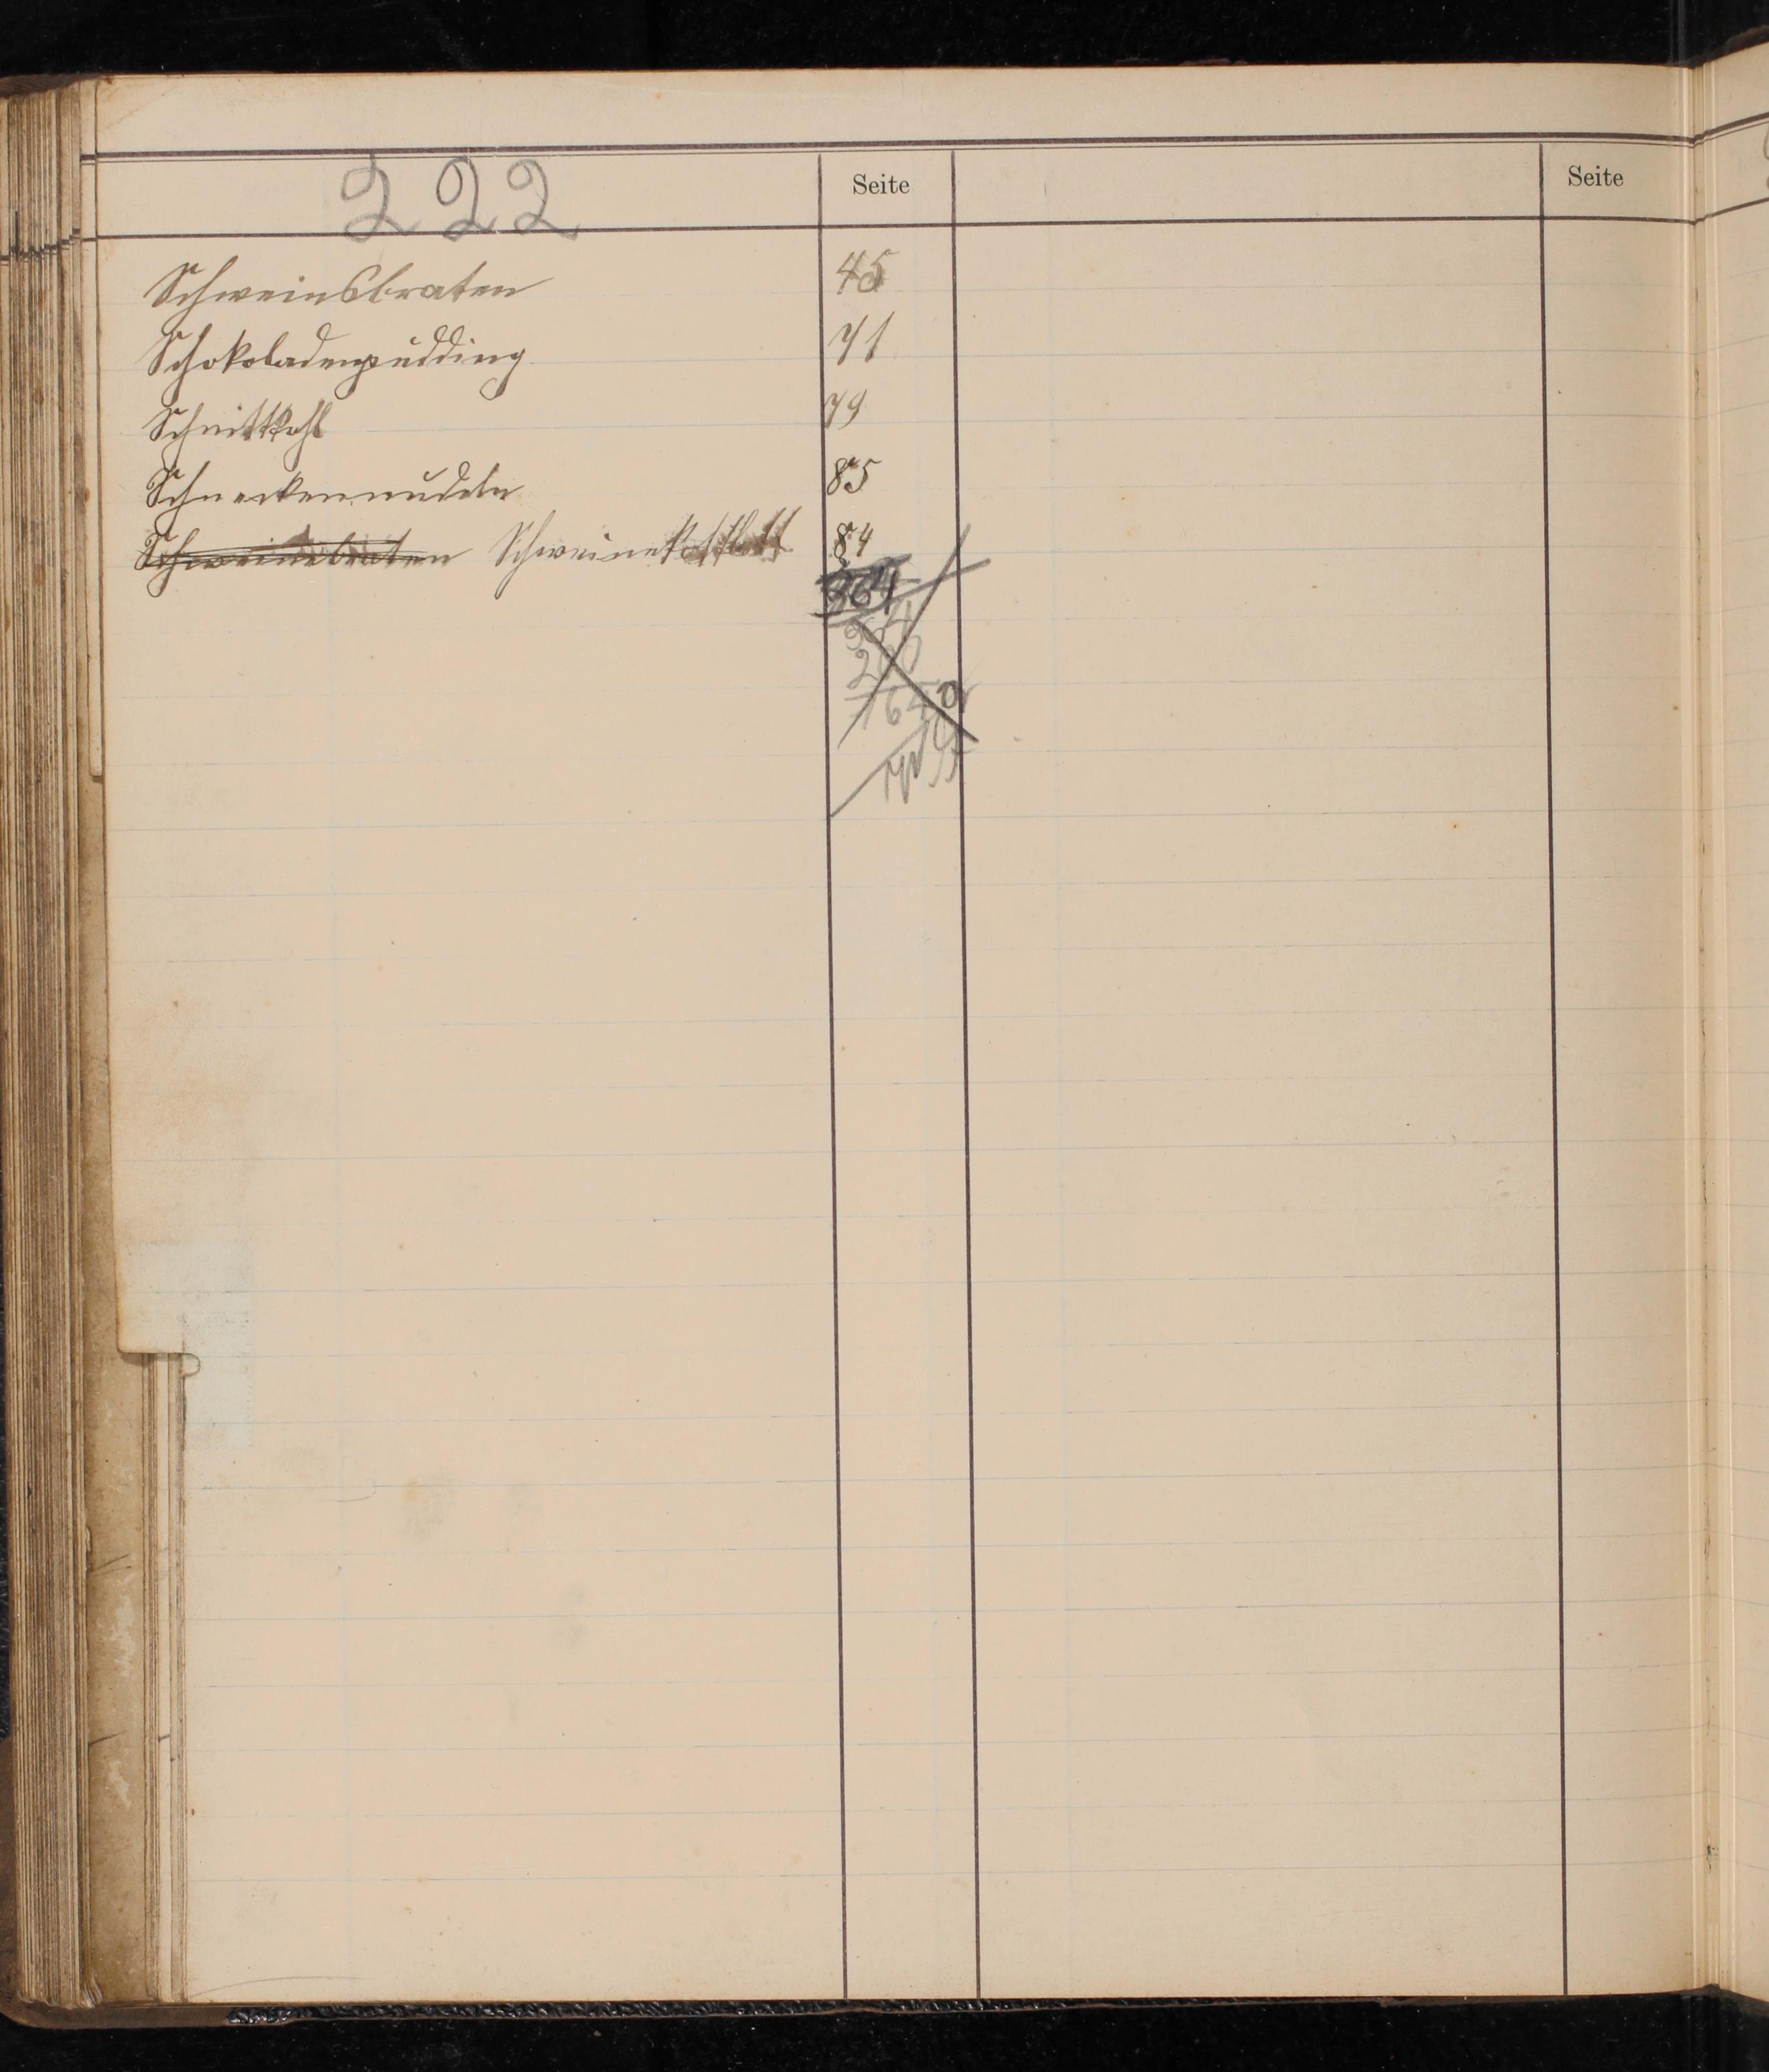 222 Seite Seite
Schweinsbraten 45
Schokoladenpudding 71
Schnittkohl 79
Schneckennudeln 85
Schweinebraten Schweinekottlett 84
264